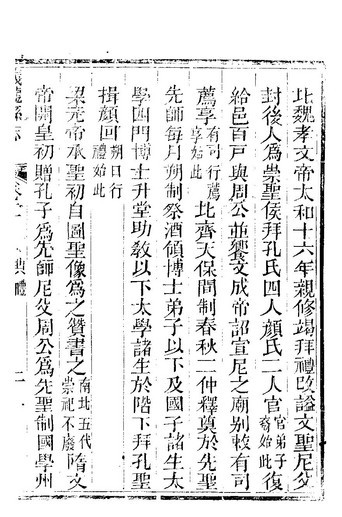 北魏孝文帝太和十六年親修謁拜禮改謚文聖尼父
封後人為崇聖侯拜孔氏四人顏氏二人官官弟子裔始此復
給邑百戶與周公並饗文成帝詔宣尼之廟別敕有司
薦享有司行薦享始此北齊天保間制春秋二仲釋奠於先聖
先師每月朔制祭酒領博士弟子以下及國子諸生太
學四門博士升堂助教以下太學諸生於階下拜孔聖
揖顏回朔日行禮始此
梁元帝承聖初自圖聖像為之贊書之南北五代崇祀不廢隋文
帝開皇初贈孔子為先師尼父周公為先聖制國學州
縣志
典禮
二